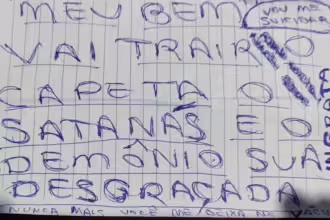 MEU BEM
VOU ME
SUICIDAR
VAI TRAIR O
CAPETA O
SATANÁS E O
DEMÔNIO SUA
DESGRAÇADA
NUNCA MAIS VOCÊ ME DEIXA DE